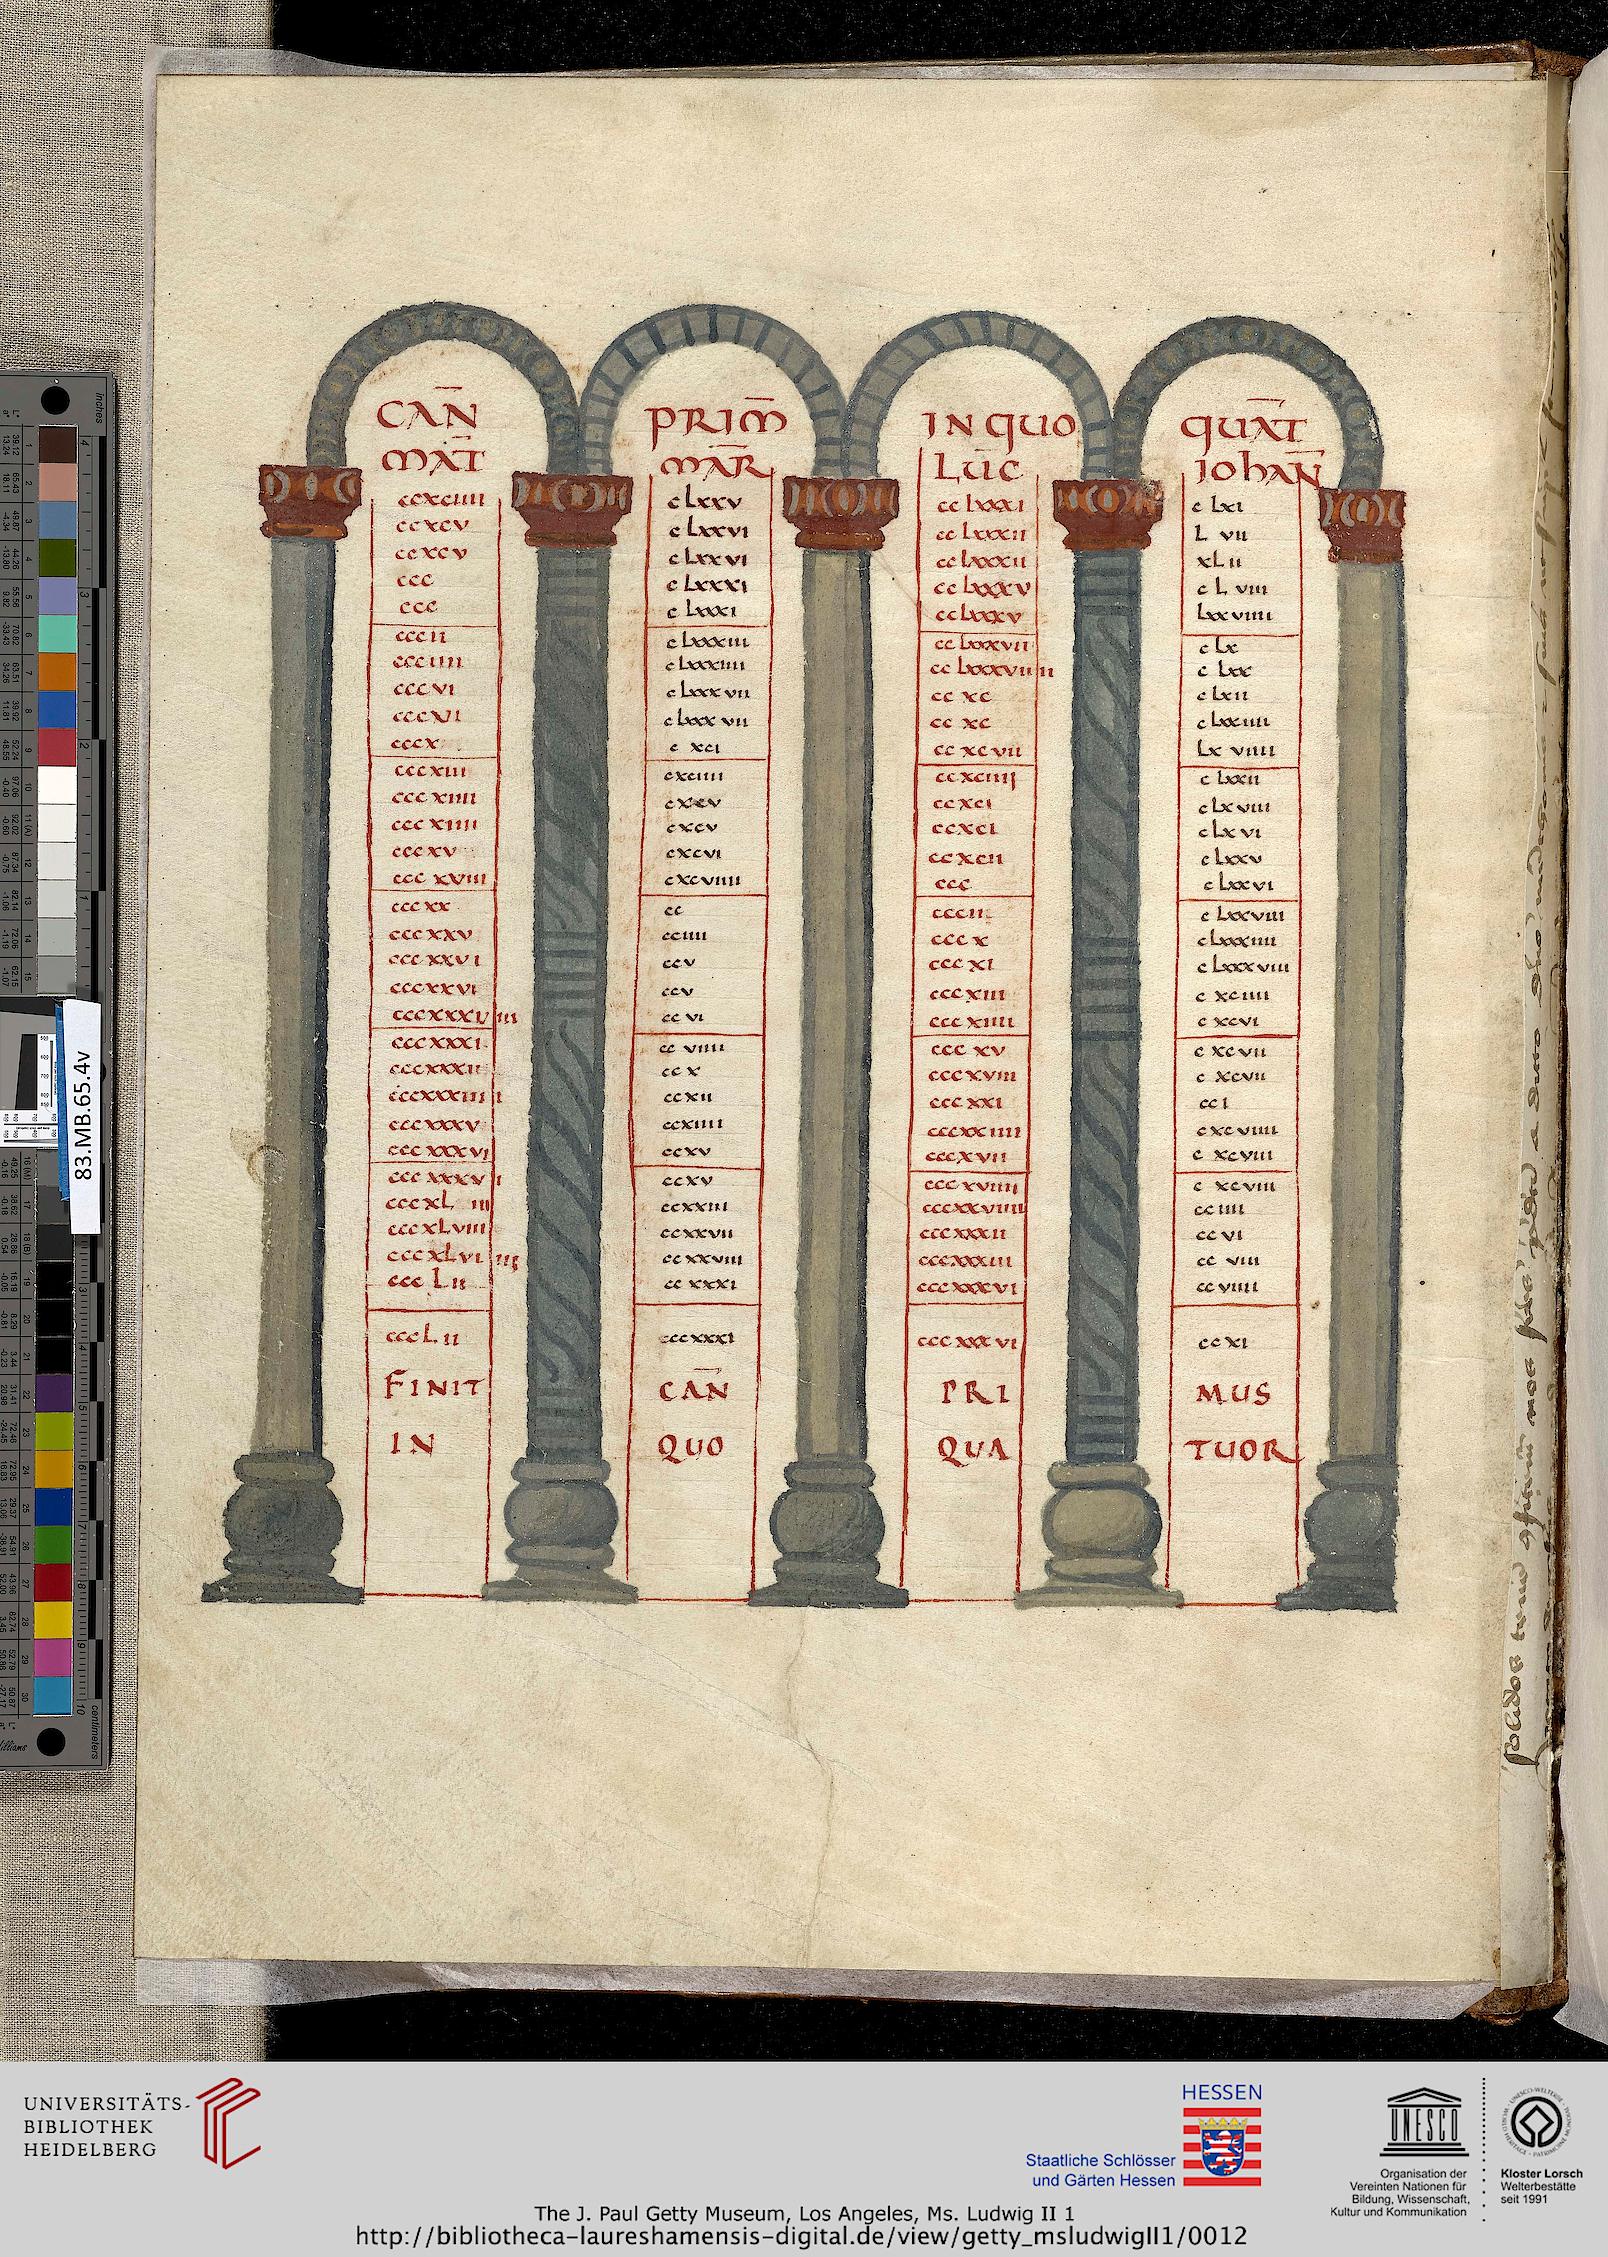 CAN̄ PRIM̄ IN QUO QUAT̄
MAT̄ MAR̄ LUC̄ IOHAN̄
ccxciiii c Lxxv cc lxxxi c lxi
ccxcv c Lxxvi cc lxxxii L vii
ccxcv c Lxxvi cc lxxxii xL ii
ccc c Lxxxi cc lxxxv c L viii
ccc c lxxxi cc lxxxv lxxviiii
cccii c lxxxiii cc lxxxvii c lx
ccciiii c lxxxiiii cc lxxxviiii c lxx
cccvi c lxxxvii cc xc c lxii
cccxi c lxxx vii cc xc c lxxiiii
cccx c xci cc xcvii lx viiii
cccxiii cxciiii ccxciiii c lxxii
ccc xiiii cxcv ccxci c lxviii
ccc xiiii cxcv ccxci c lx vi
cccxv cxcvi ccxcii c lxxv
ccc xviii cxcviiii ccc c lxxvi
cccxx cc cccii c lxxviii
cccxxv cciiii ccc x c lxxxiiii
ccc xxvi ccv ccc xi c lxxxviii
cccxxvi ccv cccxiii c xciiii
cccxxxiiii cc vi cccxiiii c xcvi
cccxxxi cc viiii ccc xv c xcvii
cccxxxii cc x cccxviii c xcvii
cccxxxiiii ccxii ccc xxi cci
cccxxxv ccxiiii cccxxiiii cxcviiii
ccc xxxvi ccxv cccxvii c xcviii
ccc xxxvi ccxv ccc xviiii c xcviii
cccxL iii ccxxiii cccxxviiii cc iiii
cccxLviii ccxxvii cccxxxii cc vi
cccxLvi iii cc xxviii cccxxxiii cc viii
ccc Lii cc xxxi cccxxxvi ccviiii
cccL ii cccxxxi ccc xxx vi cc xi
FINIT CAN̄ PRI MUS
IN QUO QUA TUOR
83.MB.65.4v
inches
centimeters
UNIVERSITÄTS-
BIBLIOTHEK
HEIDELBERG
HESSEN
Staatliche Schlösser
und Gärten Hessen
UNESCO
Organisation der
Vereinten Nationen für
Bildung, Wissenschaft,
Kultur und Kommunikation
Kloster Lorsch
Welterbestätte
seit 1991
The J. Paul Getty Museum, Los Angeles, Ms. Ludwig II 1
http://bibliotheca-laureshamensis-digital.de/view/getty_msludwigII1/0012